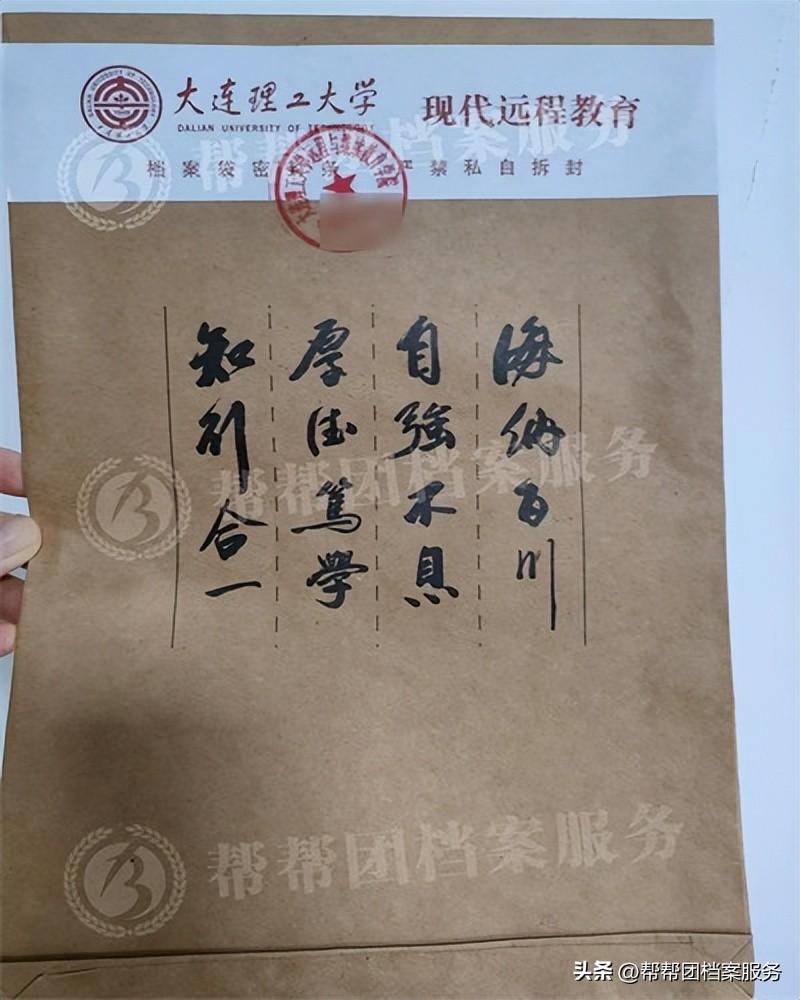 大连理工大学
DALIAN UNIVERSITY OF TECHNOLOGY
现代远程教育
档案袋密 条 严禁私自拆封
海纳百川
自強不息
厚德篤學
知行合一
帮帮团档案服务
帮帮团档案服务
帮帮团档案服务
头条 @帮帮团档案服务